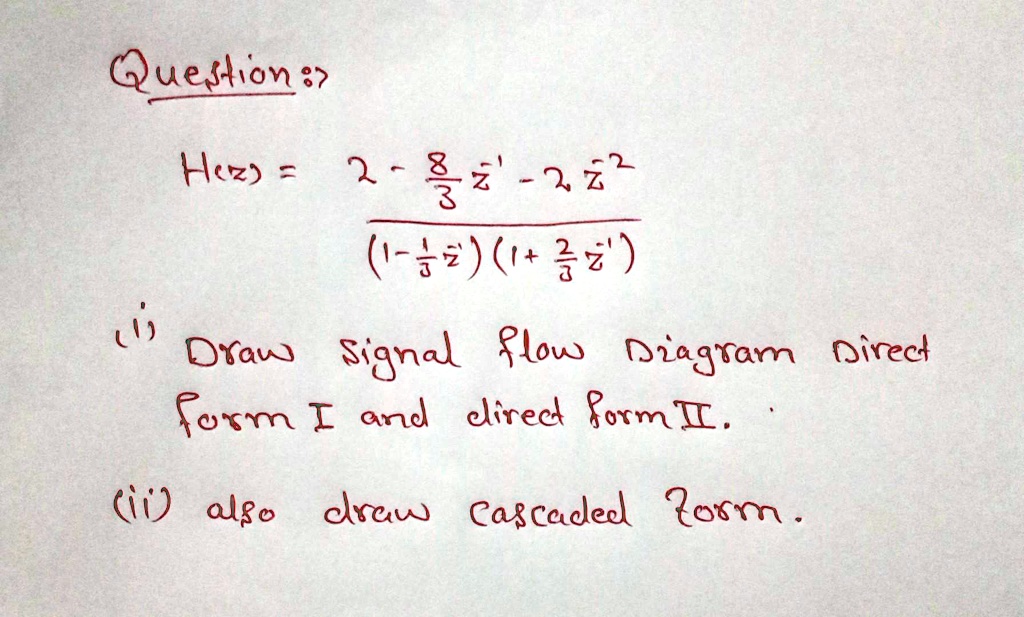 Question:>
H(z) = 2 - 8/3 z⁻¹ - 2 z⁻²
(1 - 1/3 z⁻¹) (1 + 2/3 z⁻¹)
(i) Draw signal flow Diagram Direct
form I and direct form II.
(ii) also draw cascaded form.